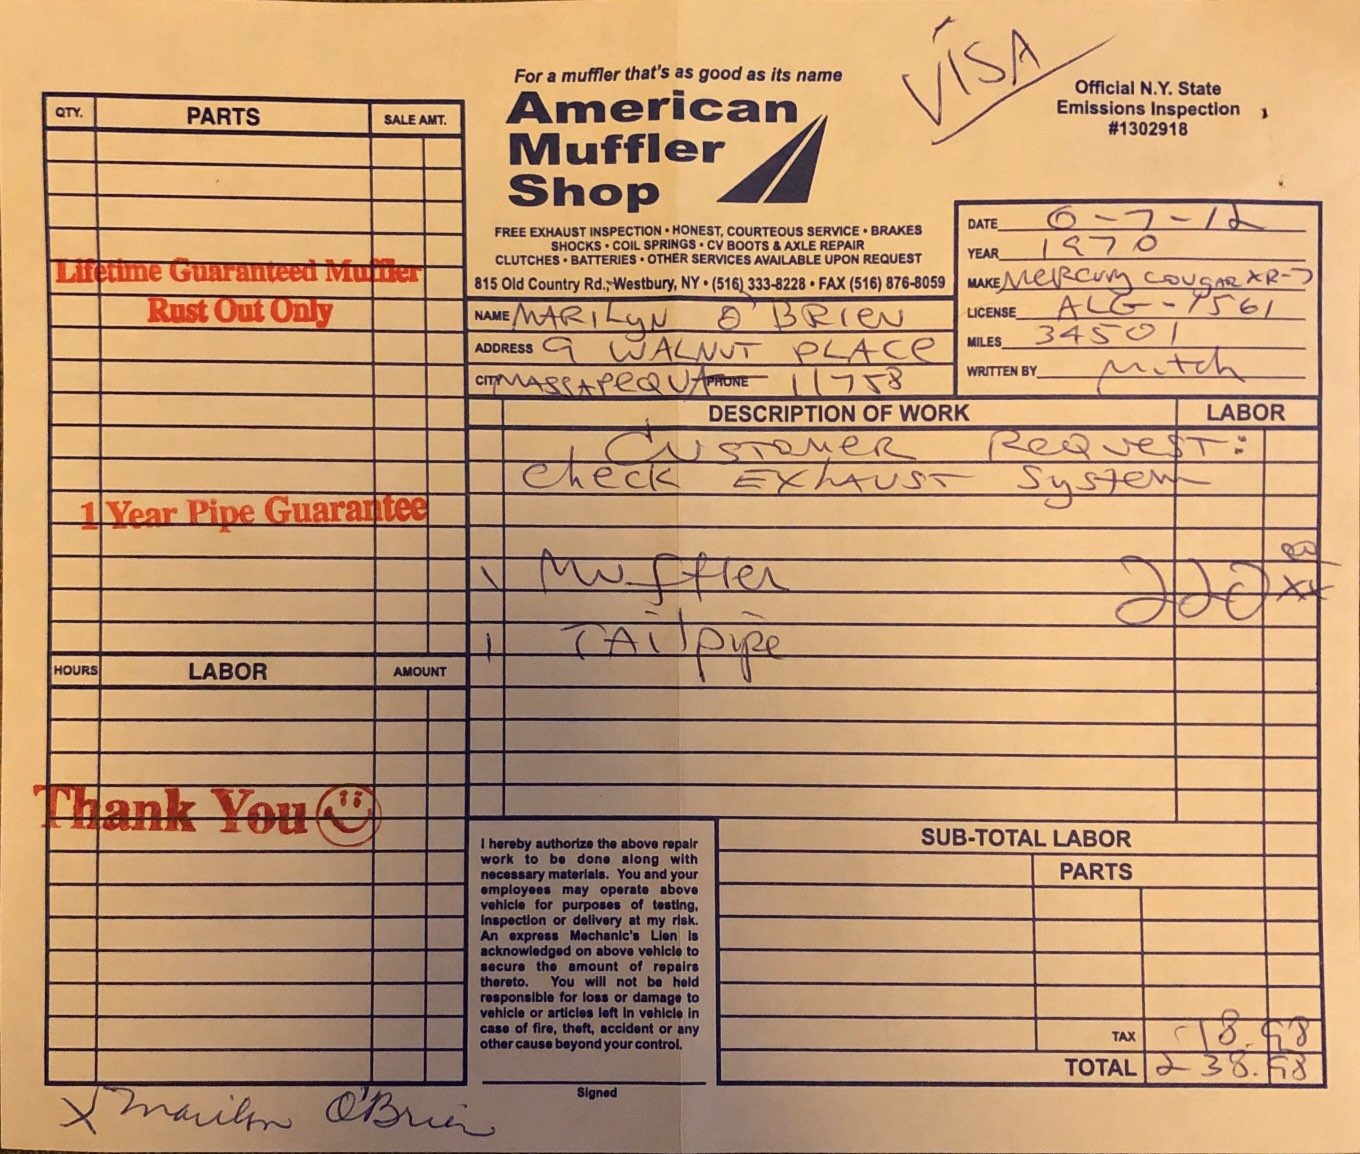 VISA
For a muffler that's as good as its name
American
Muffler
Shop
Official N.Y. State
Emissions Inspection
#1302918
FREE EXHAUST INSPECTION • HONEST, COURTEOUS SERVICE • BRAKES
SHOCKS • COIL SPRINGS • CV BOOTS & AXLE REPAIR
CLUTCHES • BATTERIES • OTHER SERVICES AVAILABLE UPON REQUEST
815 Old Country Rd., Westbury, NY • (516) 333-8228 • FAX (516) 876-8059
DATE 6-7-12
YEAR 1970
MAKE MERCURY COUGAR XR-7
LICENSE ALG-7561
MILES 34501
WRITTEN BY Mitch
NAME MARILYN O'BRIEN
ADDRESS 9 WALNUT PLACE
CITY MASSAPEQUA PHONE 11758
QTY. PARTS SALE AMT.
Lifetime Guaranteed Muffler
Rust Out Only
1 Year Pipe Guarantee
HOURS LABOR AMOUNT
Thank You
DESCRIPTION OF WORK LABOR
CUSTOMER REQUEST:
CHECK EXHAUST SYSTEM
1 Muffler 220 00/xx
1 TAILPIPE
I hereby authorize the above repair
work to be done along with
necessary materials. You and your
employees may operate above
vehicle for purposes of testing,
inspection or delivery at my risk.
An express Mechanic's Lien is
acknowledged on above vehicle to
secure the amount of repairs
thereto. You will not be held
responsible for loss or damage to
vehicle or articles left in vehicle in
case of fire, theft, accident or any
other cause beyond your control.
Signed
SUB-TOTAL LABOR
PARTS
TAX 18.98
TOTAL 238.98
X Marilyn O'Brien